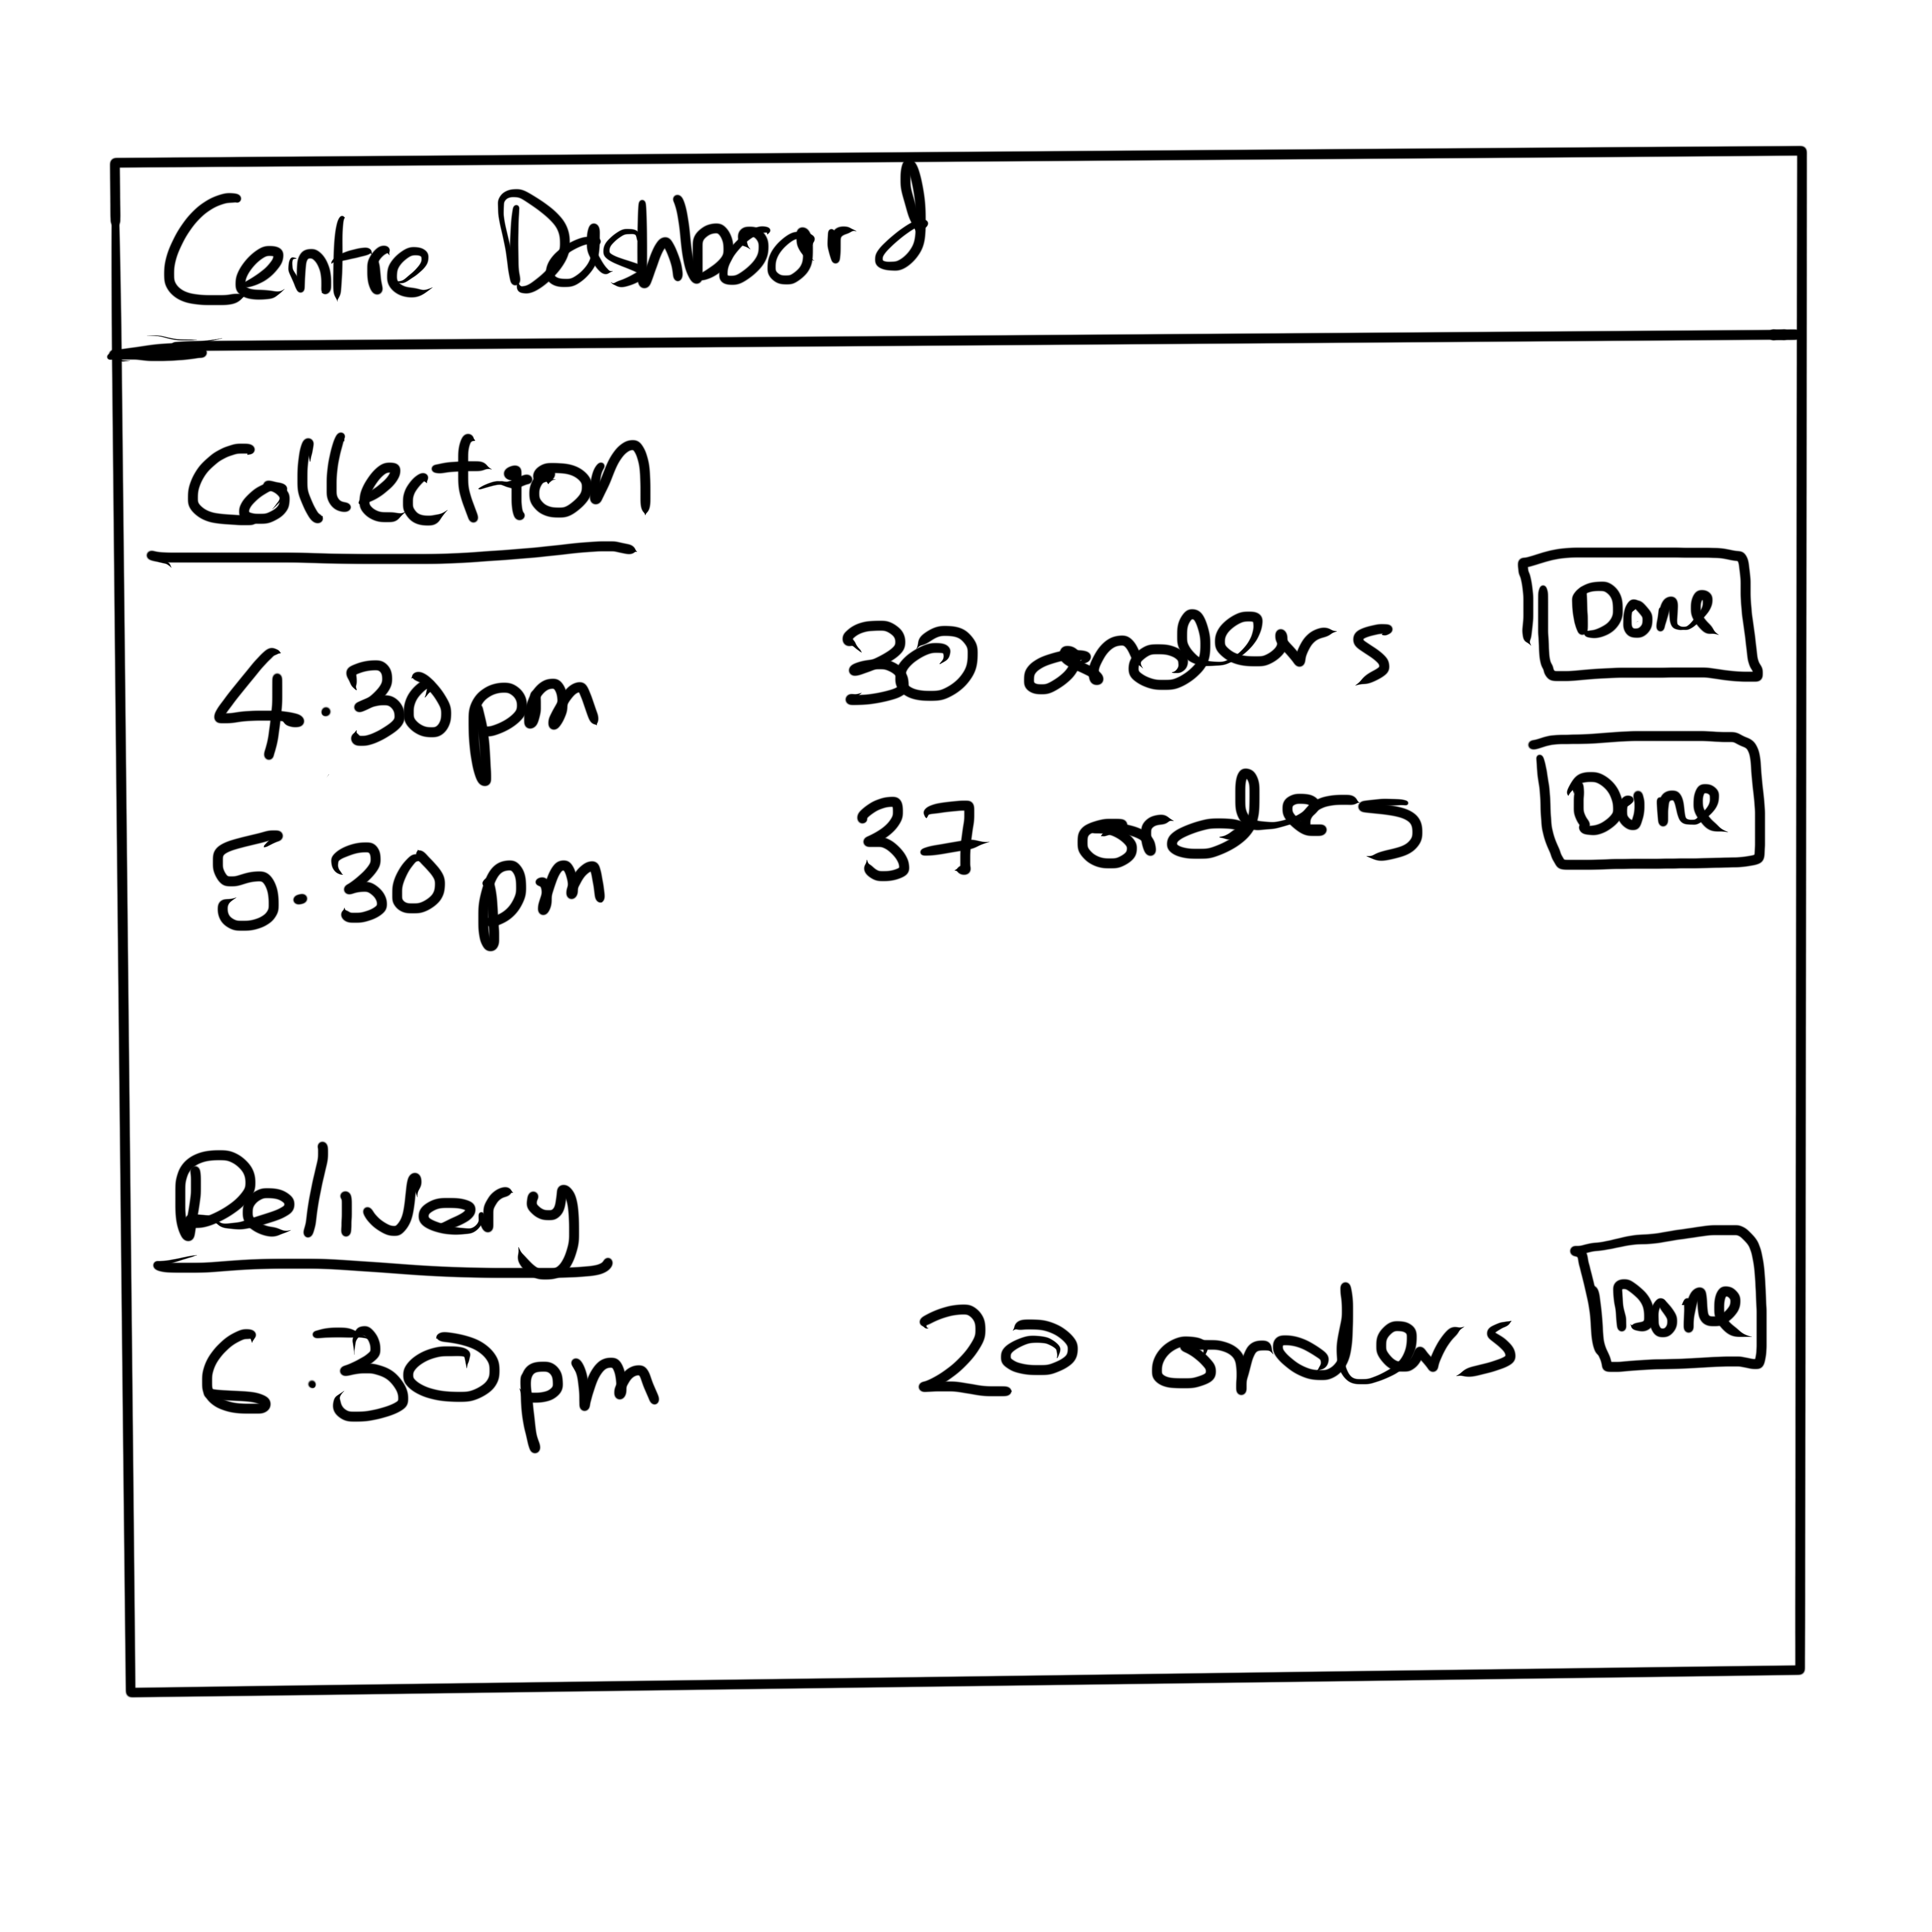 Centre Dashboard
Collection
4.30pm 30 orders Done
5.30 pm 37 orders Done
Delivery
6.30pm 20 orders Done